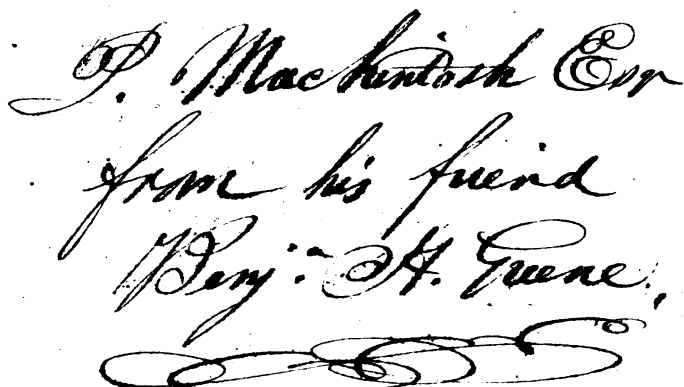 P. Mackintosh Esqr
from his friend
Benja. H. Greene.